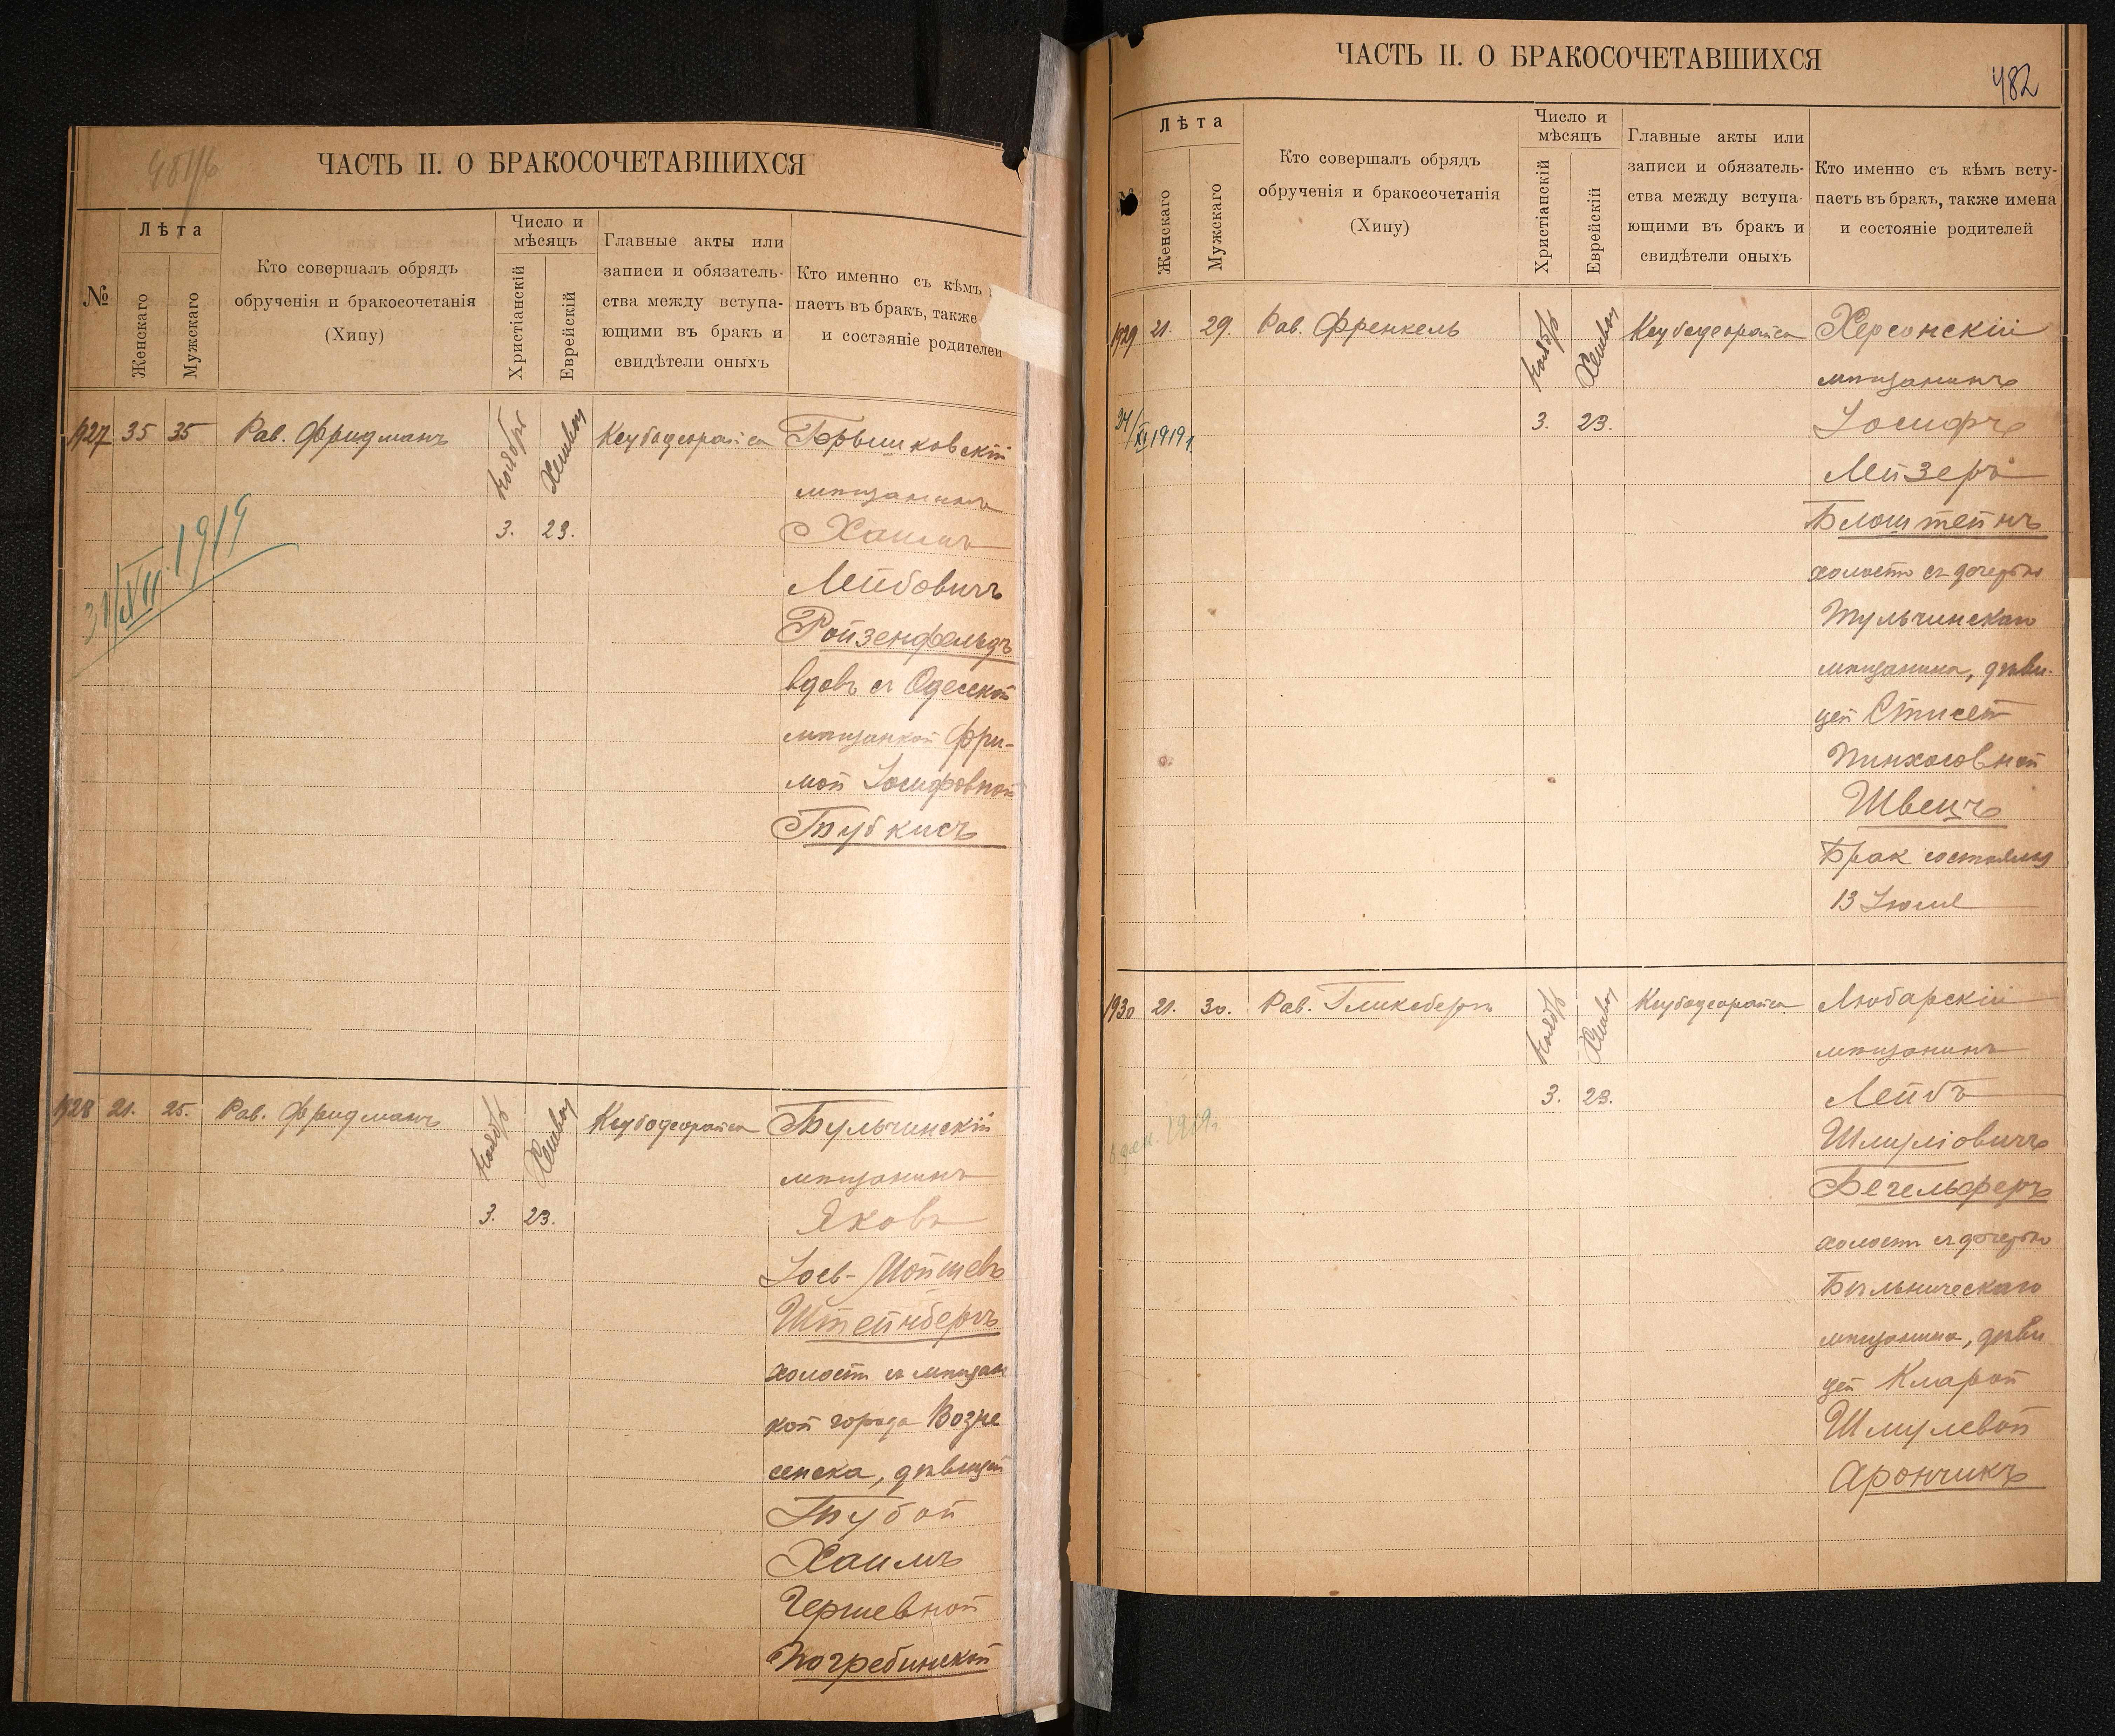 ЧАСТЬ II. О БРАКОСОЧЕТАВШИХСЯ
№
Лѣта
Женскаго
Мужскаго
Кто совершалъ обрядъ
обрученія и бракосочетанія
(Хипу)
Число и
мѣсяцъ
Христіанскій
Еврейскій
Главные акты или
записи и обязатель-
ства между вступа-
ющими въ бракъ и
свидѣтели оныхъ
Кто именно съ кѣмъ
паетъ въ бракъ, также
и состояніе родителей
1927 35 35 Рав. Фридманъ
Ноября
Хешвон
3. 23.
Кеубодеорайса
мѣщанинъ
Хаимъ
Лейбовичъ
Ройзенфельдъ
вдовъ съ Одесской
мѣщанкой Фри-
мой Іосифовной
31/XII 1919
1928 21. 25. Рав. Фридманъ
Ноября
Хешвон
3. 23.
Кеубодеорайса
Тульчинскій
мѣщанинъ
Яковъ
Іось-Мойшевъ
Штейнбергъ
холостъ съ мѣщан
кой города Возне
сенска, дѣвицей
Хаимъ
Гершевной
Погребинской
ЧАСТЬ II. О БРАКОСОЧЕТАВШИХСЯ
482
Лѣта
Женскаго
Мужскаго
Кто совершалъ обрядъ
обрученія и бракосочетанія
(Хипу)
Число и
мѣсяцъ
Христіанскій
Еврейскій
Главные акты или
записи и обязатель-
ства между вступа-
ющими въ бракъ и
свидѣтели оныхъ
Кто именно съ кѣмъ всту-
паетъ въ бракъ, также имена
и состояніе родителей
1929 21. 29. Рав. Френкель
Ноябрь
Хешвон
3. 23.
Кеубодеорайса
Херсонскій
мѣщанинъ
Іосифъ
Лейзеръ
Блоштейнъ
холостъ съ дочерью
Тульчинскаго
мѣщанина, дѣви-
цей
Пинхасовной
Швецъ
Брак состоялся
13 Іюля
1930 21. 30. Рав. Гликсбергъ
Ноябрь
Хешвон
3. 23.
Кеубодеорайса
Любарскій
мѣщанинъ
Лейбъ
Шмуліовичъ
Бегельферъ
холостъ съ дочерью
мѣщанина, дѣви
цей Кларой
Шмулевой
Арончикъ